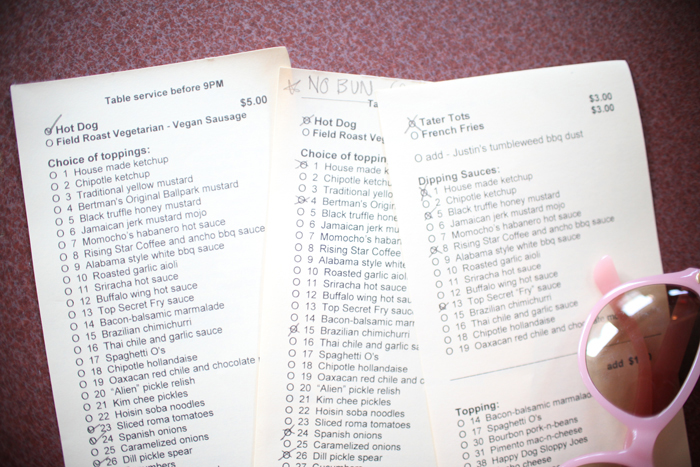 Table service before 9PM
$5.00
Hot Dog
O Field Roast Vegetarian - Vegan Sausage
Choice of toppings:
O 1 House made ketchup
O 2 Chipotle ketchup
O 3 Traditional yellow mustard
O 4 Bertman's Original Ballpark mustard
O 5 Black truffle honey mustard
O 6 Jamaican jerk mustard mojo
O 7 Momocho's habanero hot sauce
O 8 Rising Star Coffee and ancho bbq sauce
O 9 Alabama style white bbq sauce
O 10 Roasted garlic aioli
O 11 Sriracha hot sauce
O 12 Buffalo wing hot sauce
O 13 Top Secret Fry sauce
O 14 Bacon-balsamic marmalade
O 15 Brazilian chimichurri
O 16 Thai chile and garlic sauce
O 17 Spaghetti O's
O 18 Chipotle hollandaise
O 19 Oaxacan red chile and chocolate
O 20 "Alien" pickle relish
O 21 Kim chee pickles
O 22 Hoisin soba noodles
O 23 Sliced roma tomatoes
O 24 Spanish onions
O 25 Caramelized onions
O 26 Dill pickle spear
NO BUN
Ta
Hot Dog
O Field Roast Veg
Choice of toppin
O 1 House made k
O 2 Chipotle ketchu
O 3 Traditional yello
O 4 Bertman's Origin
O 5 Black truffle hone
O 6 Jamaican jerk mu
O 7 Momocho's haban
O 8 Rising Star Coffee
O 9 Alabama style white
O 10 Roasted garlic aioli
O 11 Sriracha hot sauce
O 12 Buffalo wing hot sau
O 13 Top Secret Fry sauc
O 14 Bacon-balsamic mar
O 15 Brazilian chimichurri
O 16 Thai chile and garlic sa
O 17 Spaghetti O's
O 18 Chipotle hollandaise
O 19 Oaxacan red chile and c
O 20 "Alien" pickle relish
O 21 Kim chee pickles
O 22 Hoisin soba noodles
O 23 Sliced roma tomatoes
O 24 Spanish onions
O 25 Caramelized onions
O 26 Dill pickle spear
Tater Tots $3.00
O French Fries $3.00
O add - Justin's tumbleweed bbq dust
Dipping Sauces:
O 1 House made ketchup
O 2 Chipotle ketchup
O 5 Black truffle honey mustard
O 6 Jamaican jerk mustard mojo
O 7 Momocho's habanero hot sauce
O 8 Rising Star Coffee and ancho bbq sauce
O 9 Alabama style white bbq sauce
O 10 Roasted garlic aioli
O 11 Sriracha hot sauce
O 12 Buffalo wing hot sauce
O 13 Top Secret "Fry" sauce
O 15 Brazilian chimichurri
O 16 Thai chile and garlic sauce
O 18 Chipotle hollandaise
O 19 Oaxacan red chile and choc
add $1
Topping:
O 14 Bacon-balsamic marmalad
O 17 Spaghetti O's
O 30 Bourbon pork-n-beans
O 31 Pimento mac-n-cheese
O 38 Happy Dog Sloppy Joes